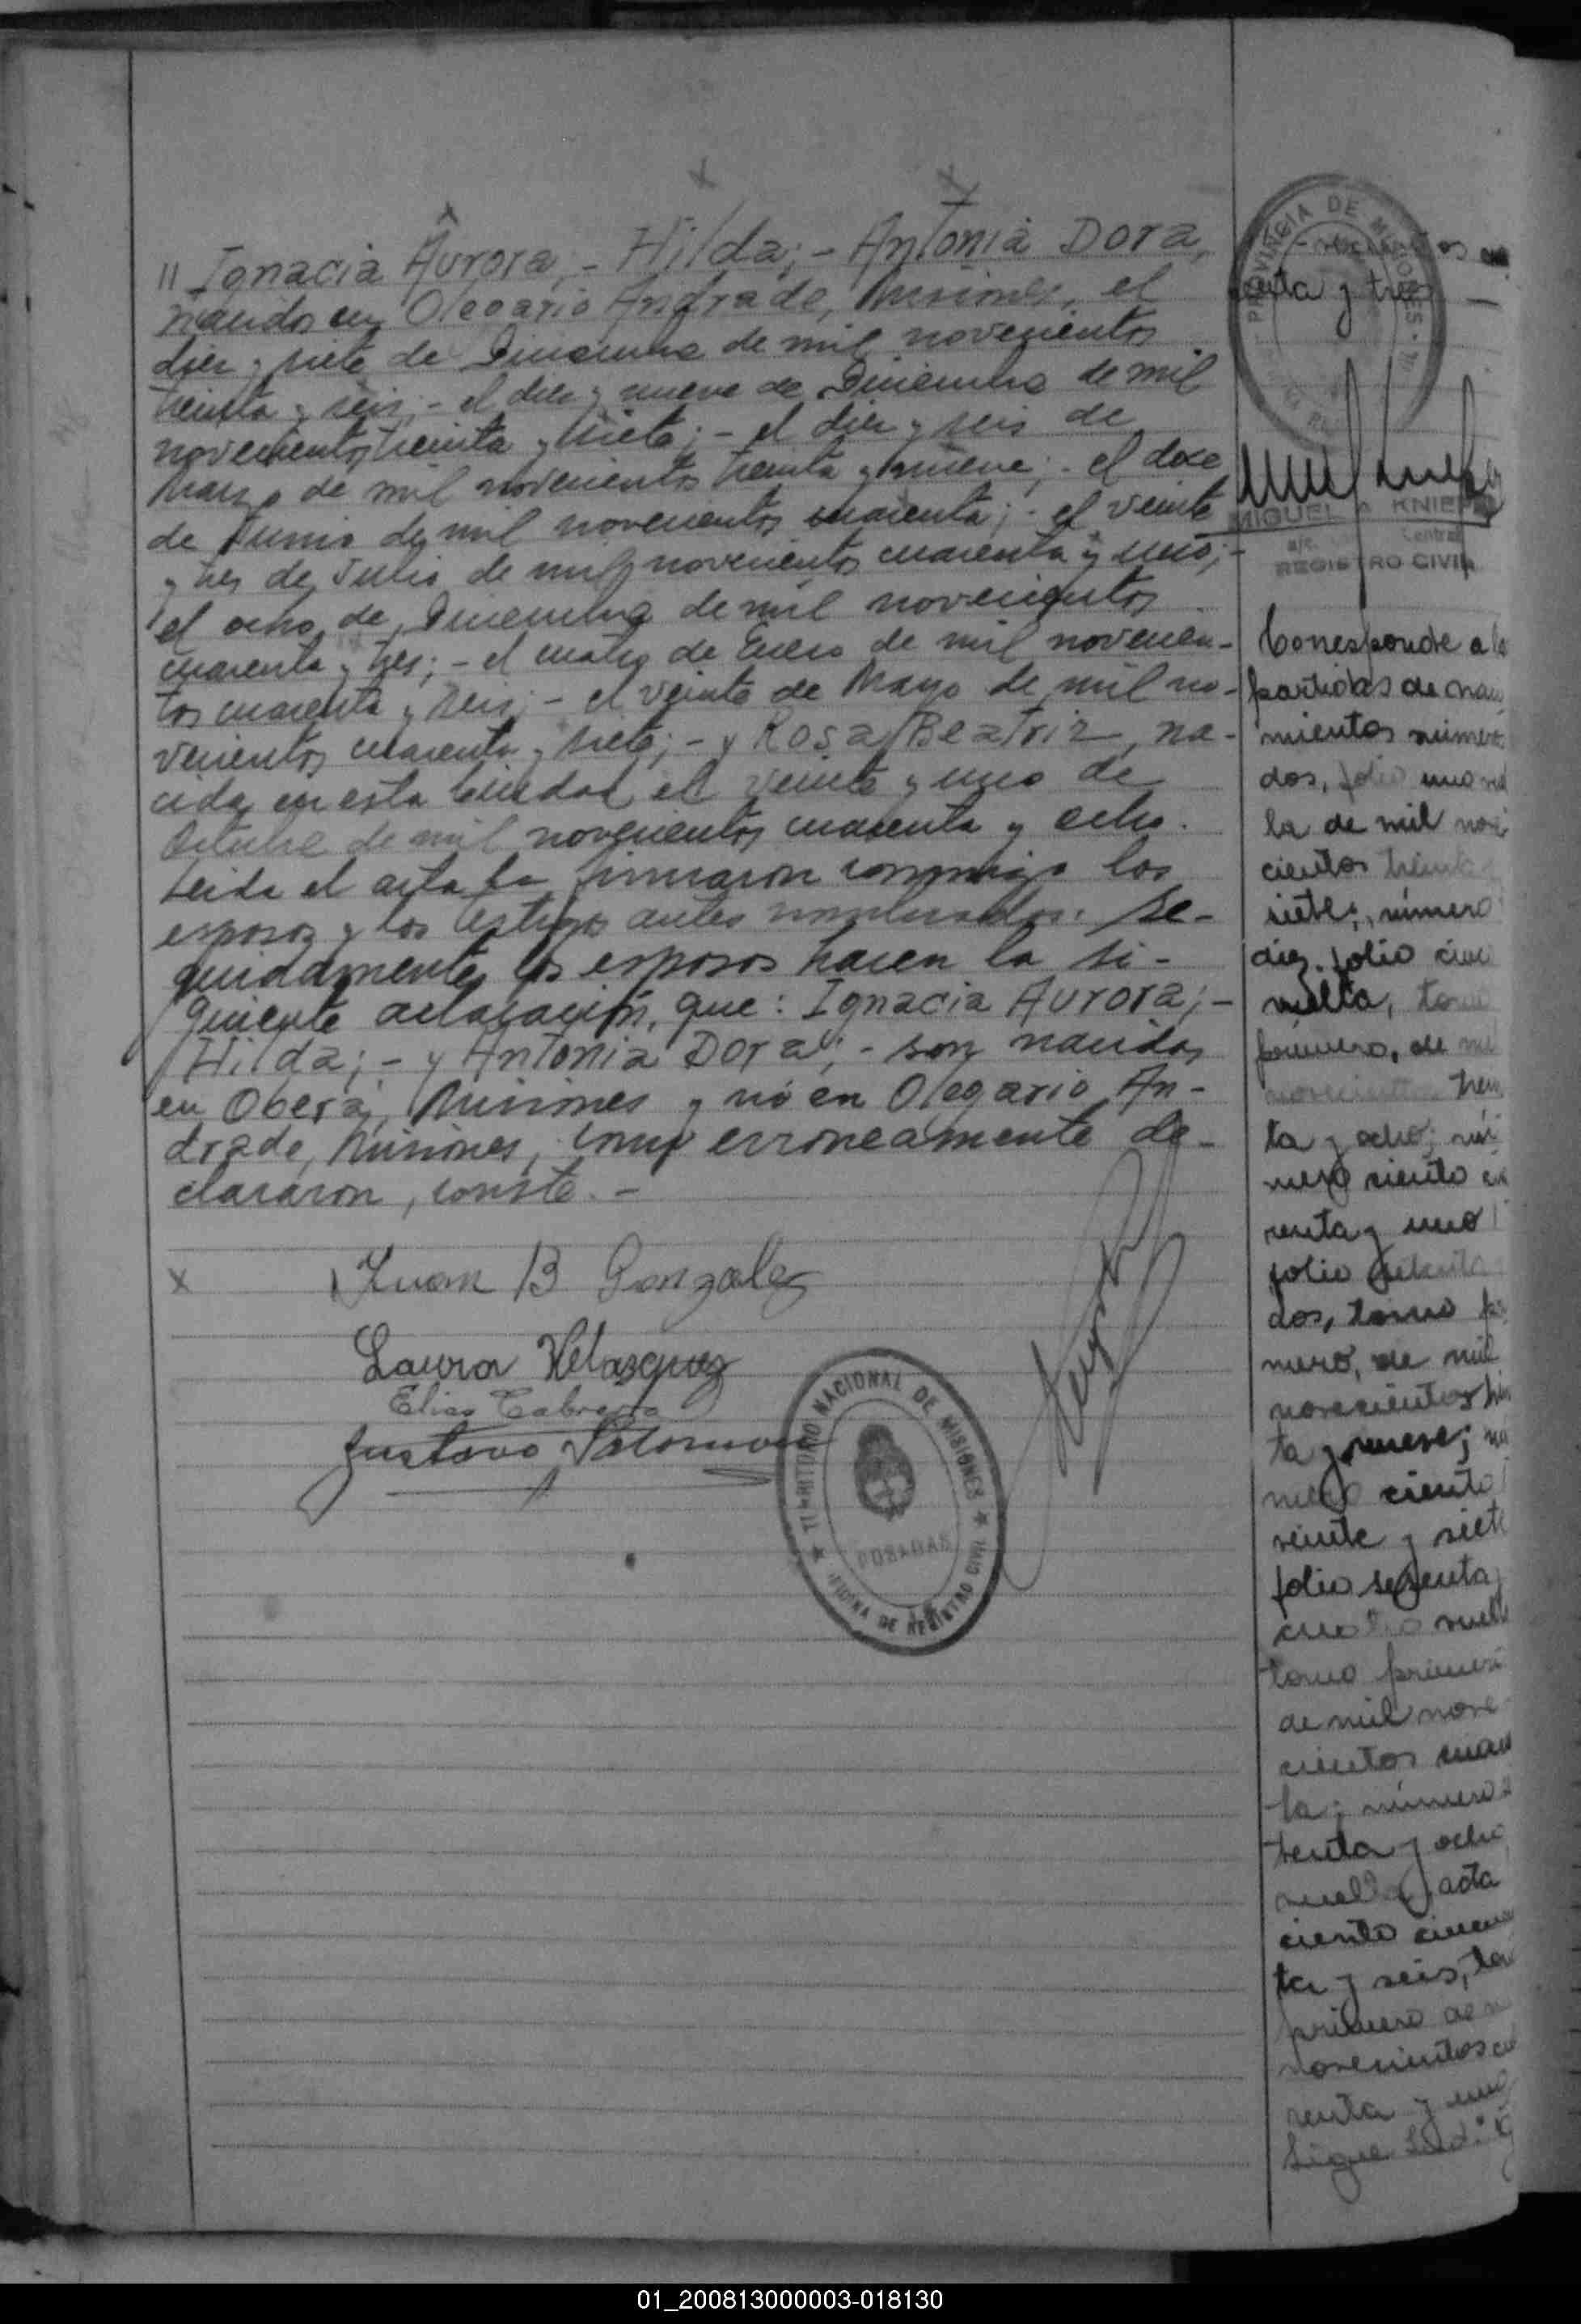 " Ignacia Aurora; - Hilda; - Antonia Dora,
nacidos en Olegario Andrade, Misiones, el
diez y siete de Diciembre de mil novecientos
treinta y seis; - el diez y nueve de Diciembre de mil
novecientos treinta y siete; - el diez y seis de
Marzo de mil novecientos treinta y nueve; - el doce
de Junio de mil novecientos cuarenta; - el veinte
y tres de Julio de mil novecientos cuarenta y uno; -
el ocho de Diciembre de mil novecientos
cuarenta y tres; - el cuatro de Enero de mil novecien-
tos cuarenta y seis; - el veinte de Mayo de mil no-
vecientos cuarenta y siete; - y Rosa Beatriz, na-
cida en esta Ciudad el veinte y uno de
Octubre de mil novecientos cuarenta y ocho.
Leida el acta la firmaron conmigo los
esposos y los testigos antes nombrados. Se-
guidamente los esposos hacen la si-
guiente aclaración, que: Ignacia Aurora; -
Hilda; - y Antonia Dora; - son nacidas
en Oberá, Misiones y no en Olegario An-
drade, Misiones, como erroneamente de-
clararon, conste. -
x Juan B Gonzalez
Laura Velazquez
Elias Cabrera
Gustavo
TERRITORIO NACIONAL DE MISIONES
POSADAS
OFICINA DE REGISTRO CIVIL
PROVINCIA DE MISIONES
y tres
MIGUEL A KNIE
Central
REGISTRO CIVIL
Corresponde a la
partidas de naci
mientos número
dos, folio uno vuel
la de mil nove
cientos treinta y
siete; número
diez. folio cinc
vuelta, tomo
primero, de mil
novecientos trein
ta y ocho; nú
mero ciento cua
renta y uno
folio setenta
dos, tomo pri
mero, de mil
novecientos trein
ta y nueve; nú
mero ciento
veinte y siete
folio sesenta y
cuatro vuelta
tomo primero
de mil nove
cientos cuaren
ta; número
treinta y ocho
vuelta, acta
ciento cincuen
ta y seis, to
primero de m
novecientos cua
renta y uno
Sigue
01_200813000003-018130